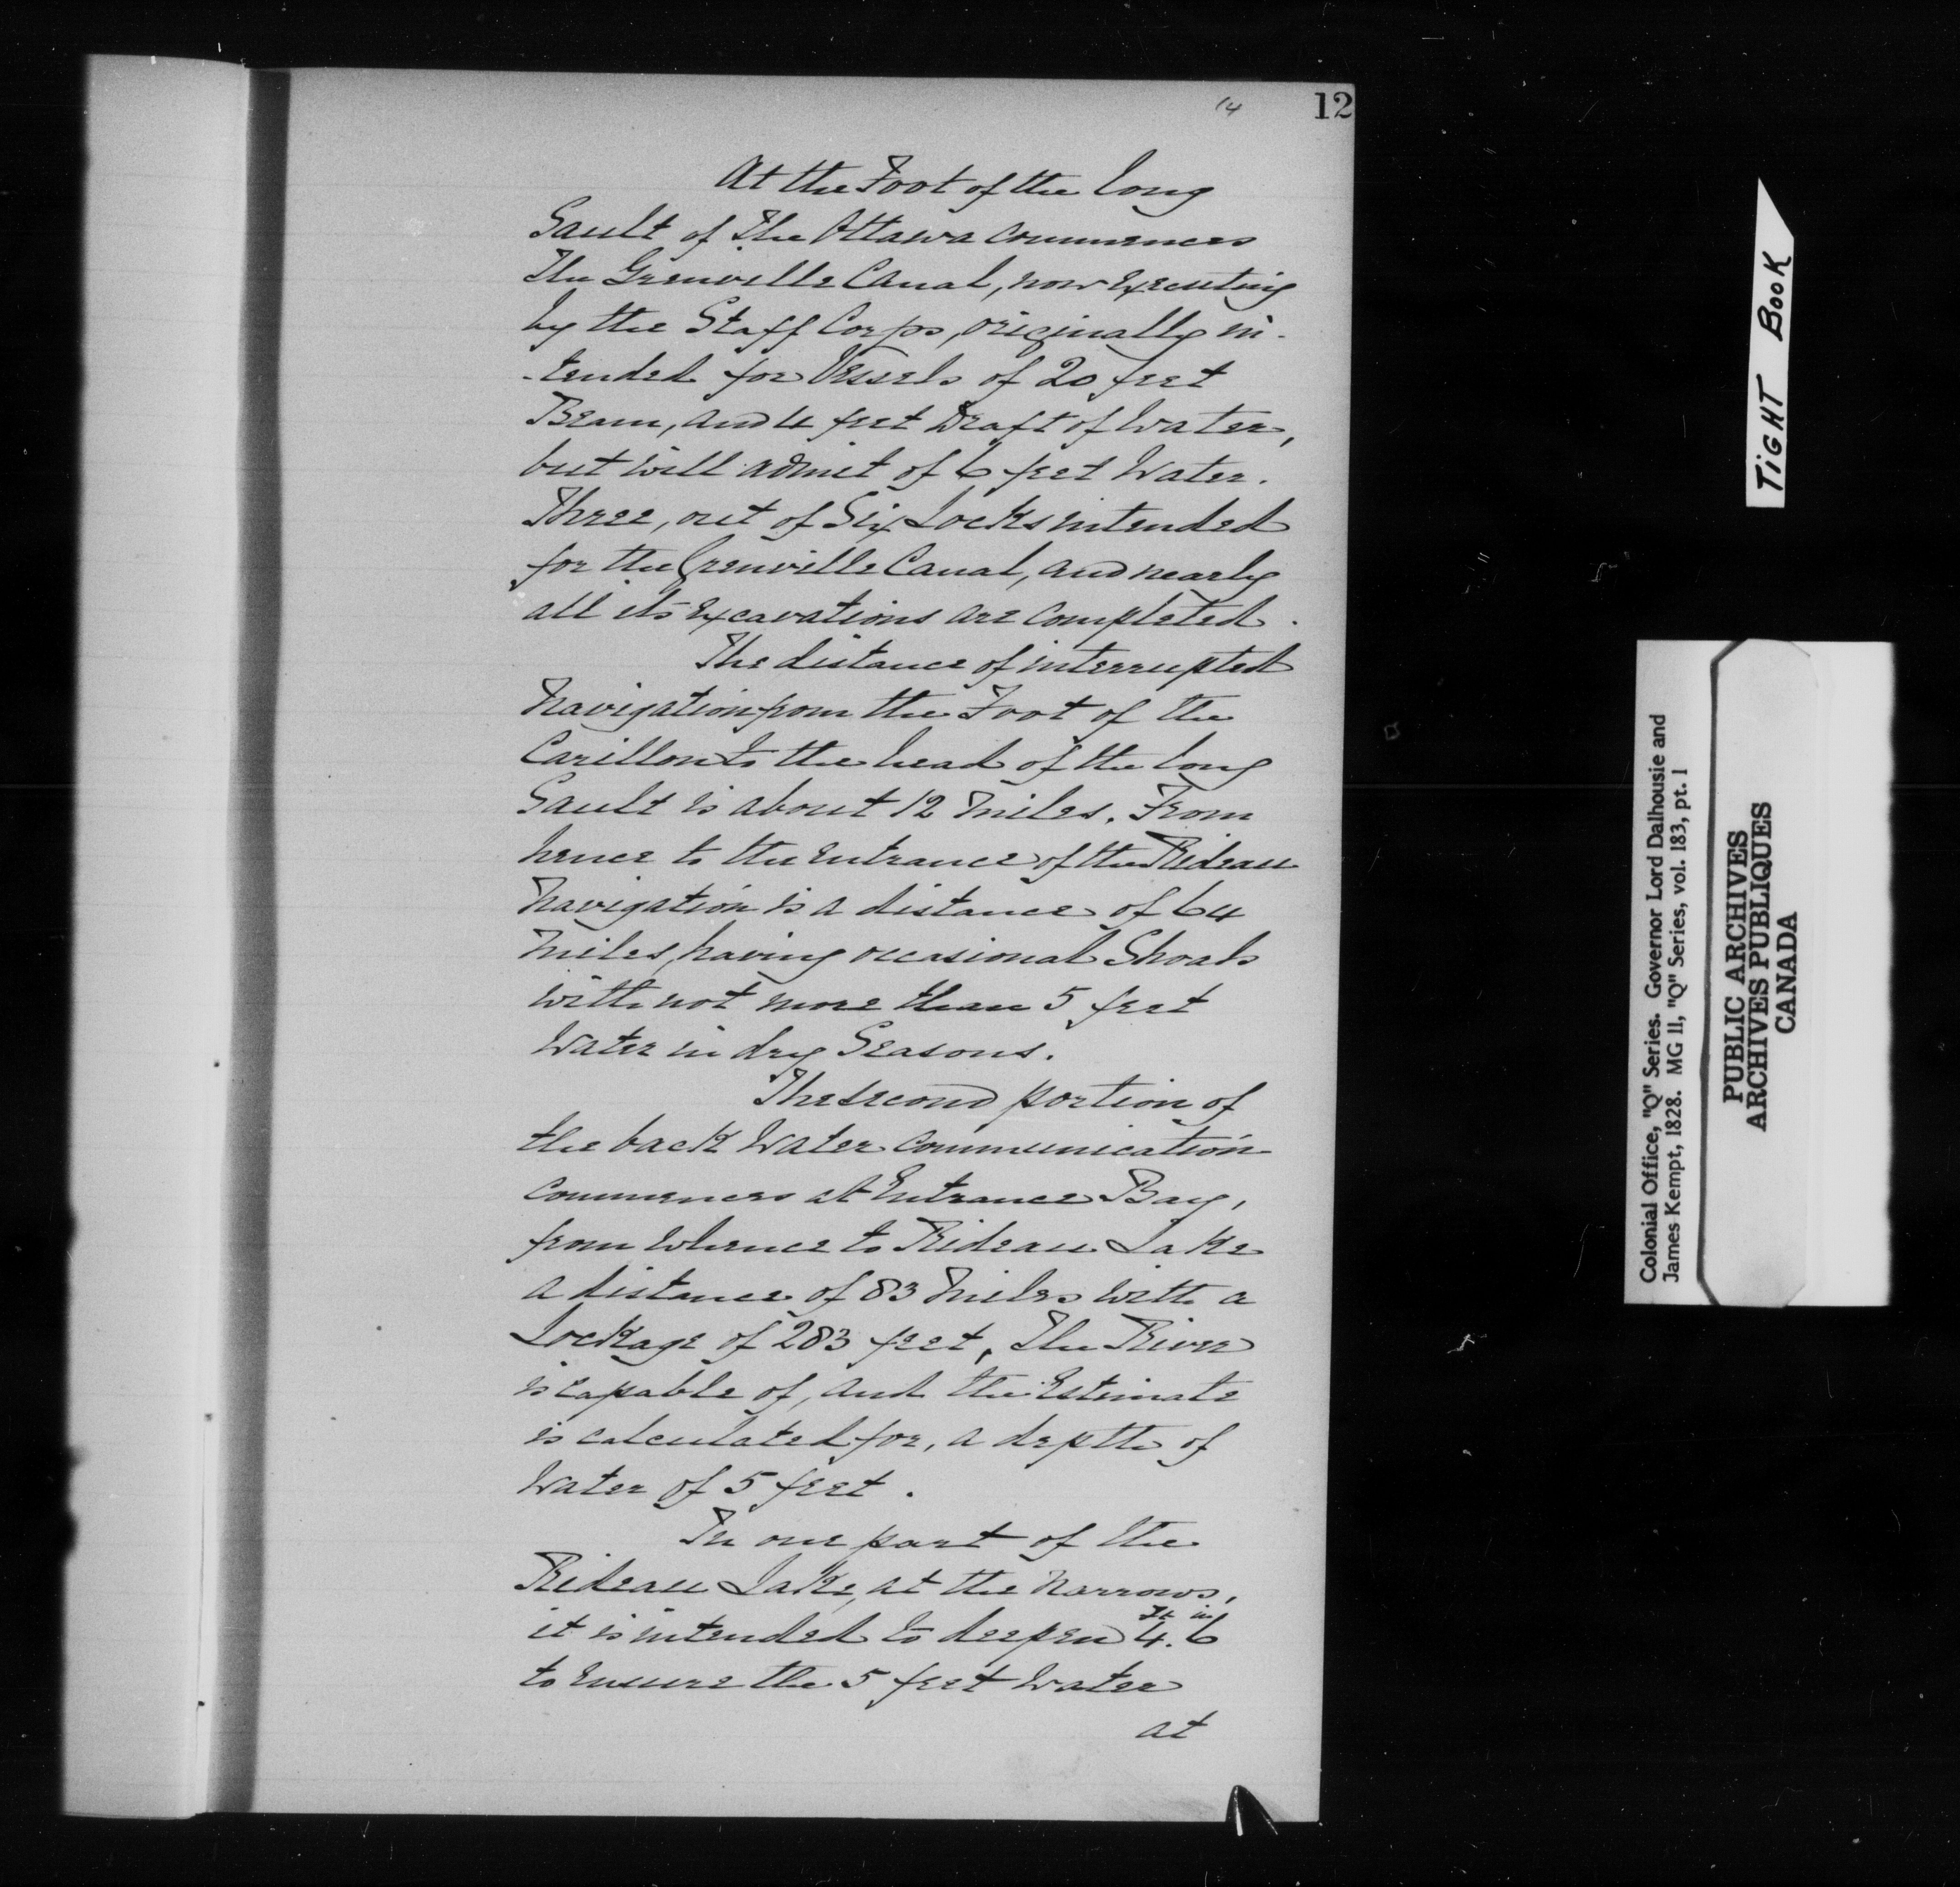 14
12
At the Foot of the long
Sault of the Ottawa commences
The Grenville Canal, now executing
by the Staff Corps, originally in-
-tended for Vessels of 20 feet
Beam, and 4 feet Draft of Water,
but will admit of 6 feet Water.
Three, out of Six Locks intended
for the Grenville Canal, and nearly
all its excavations are completed.
The distance of interrupted
Navigation from the Foot of the
Carillon to the head of the long
Sault is about 12 Miles. From
hence to the entrance of the Rideau
Navigation is a distance of 64
Miles, having occasional Shoals
with not more than 5 feet
Water in dry Seasons.
The second portion of
the back Water Communication
commences at Entrance Bay,
from whence to Rideau Lake
a distance of 83 Miles with a
Lockage of 283 feet, The River
is capable of, and the Estimate
is calculated for, a depth of
Water of 5 feet.
In one part of the
Rideau Lake, at the Narrows,
it is intended to deepen 4.6
Ft in
to ensure the 5 feet Water
at
TIGHT BOOK
Colonial Office, "Q" Series. Governor Lord Dalhousie and
James Kempt, 1828. MG 11, "Q" Series, vol. 183, pt. 1
PUBLIC ARCHIVES
ARCHIVES PUBLIQUES
CANADA